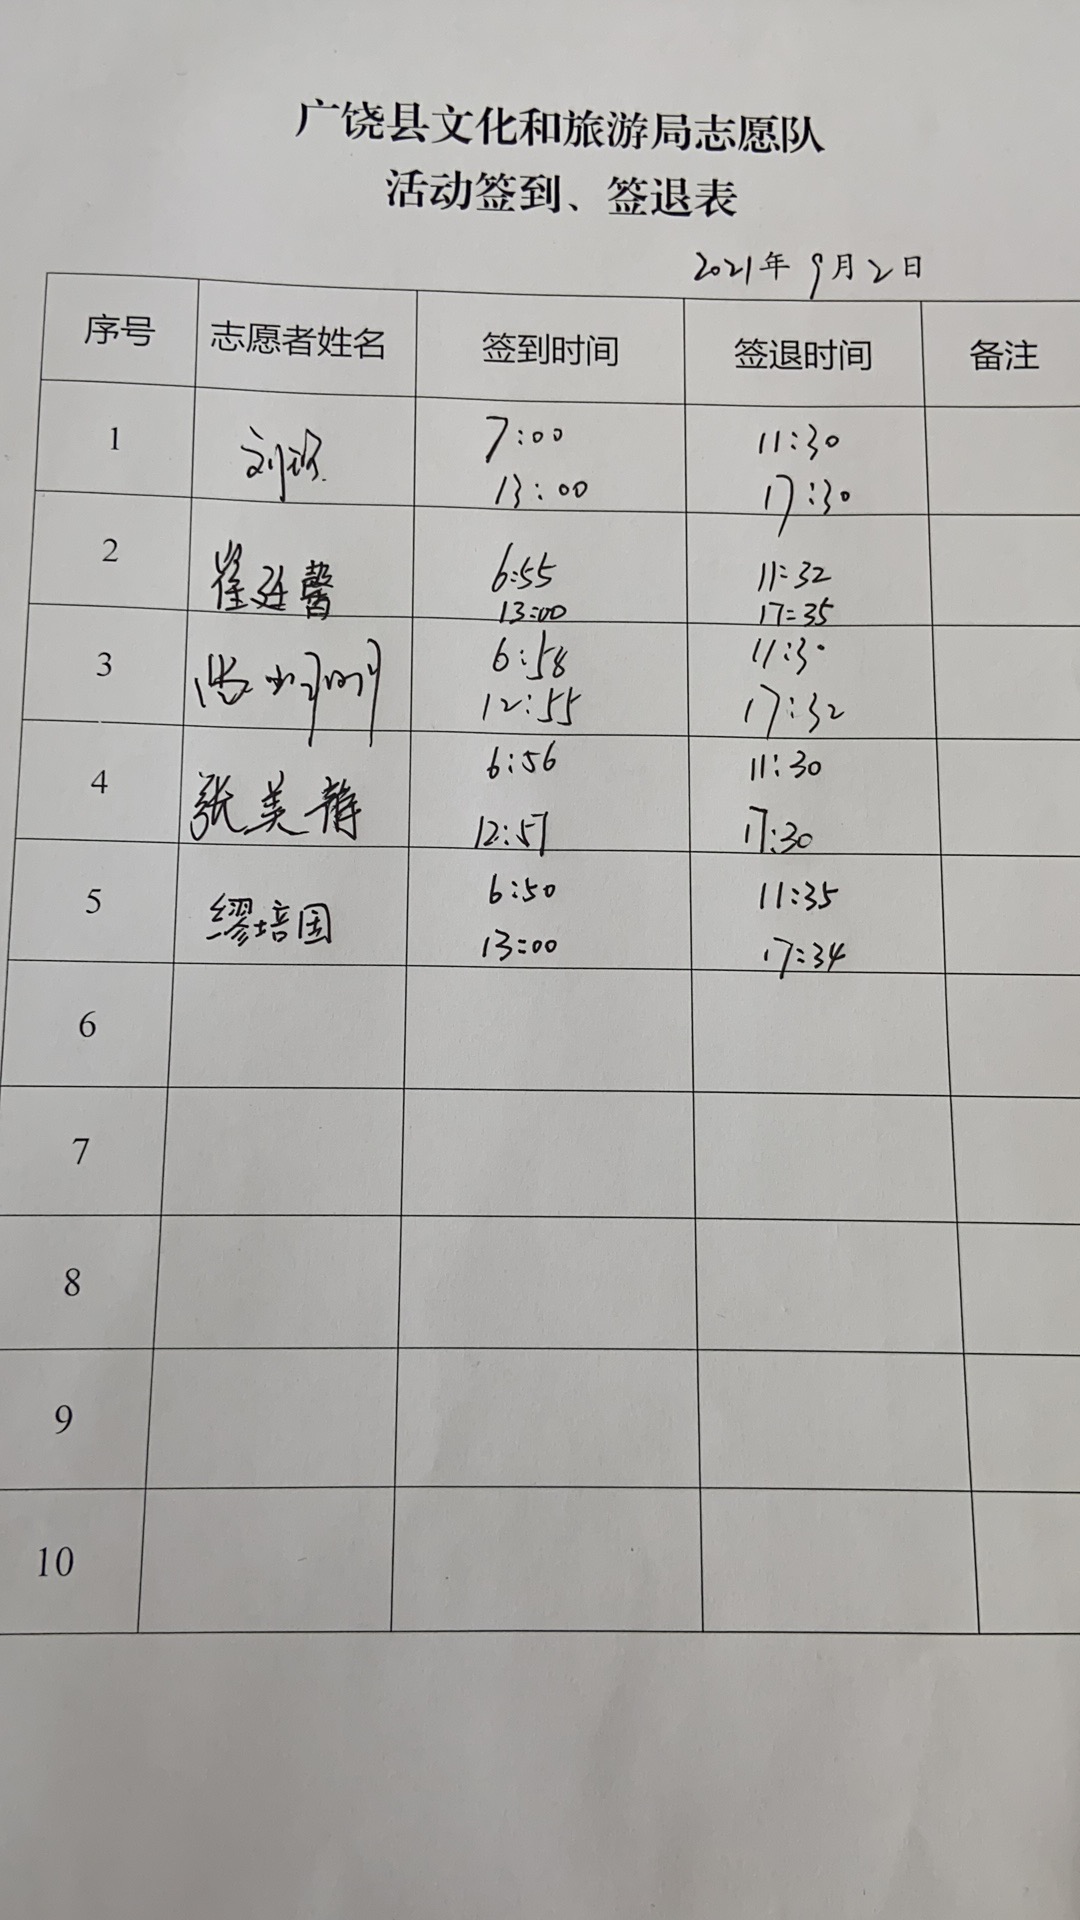 广饶县文化和旅游局志愿队
活动签到、签退表
2021年 9月2日
序号 志愿者姓名 签到时间 签退时间 备注
1 刘 7:00 11:30
13:00 17:30
2 崔廷馨 6:55 11:32
13:00 17:35
3 6:58 11:30
12:55 17:32
4 张美静 6:56 11:30
12:57 17:30
5 缪培国 6:50 11:35
13:00 17:34
6
7
8
9
10